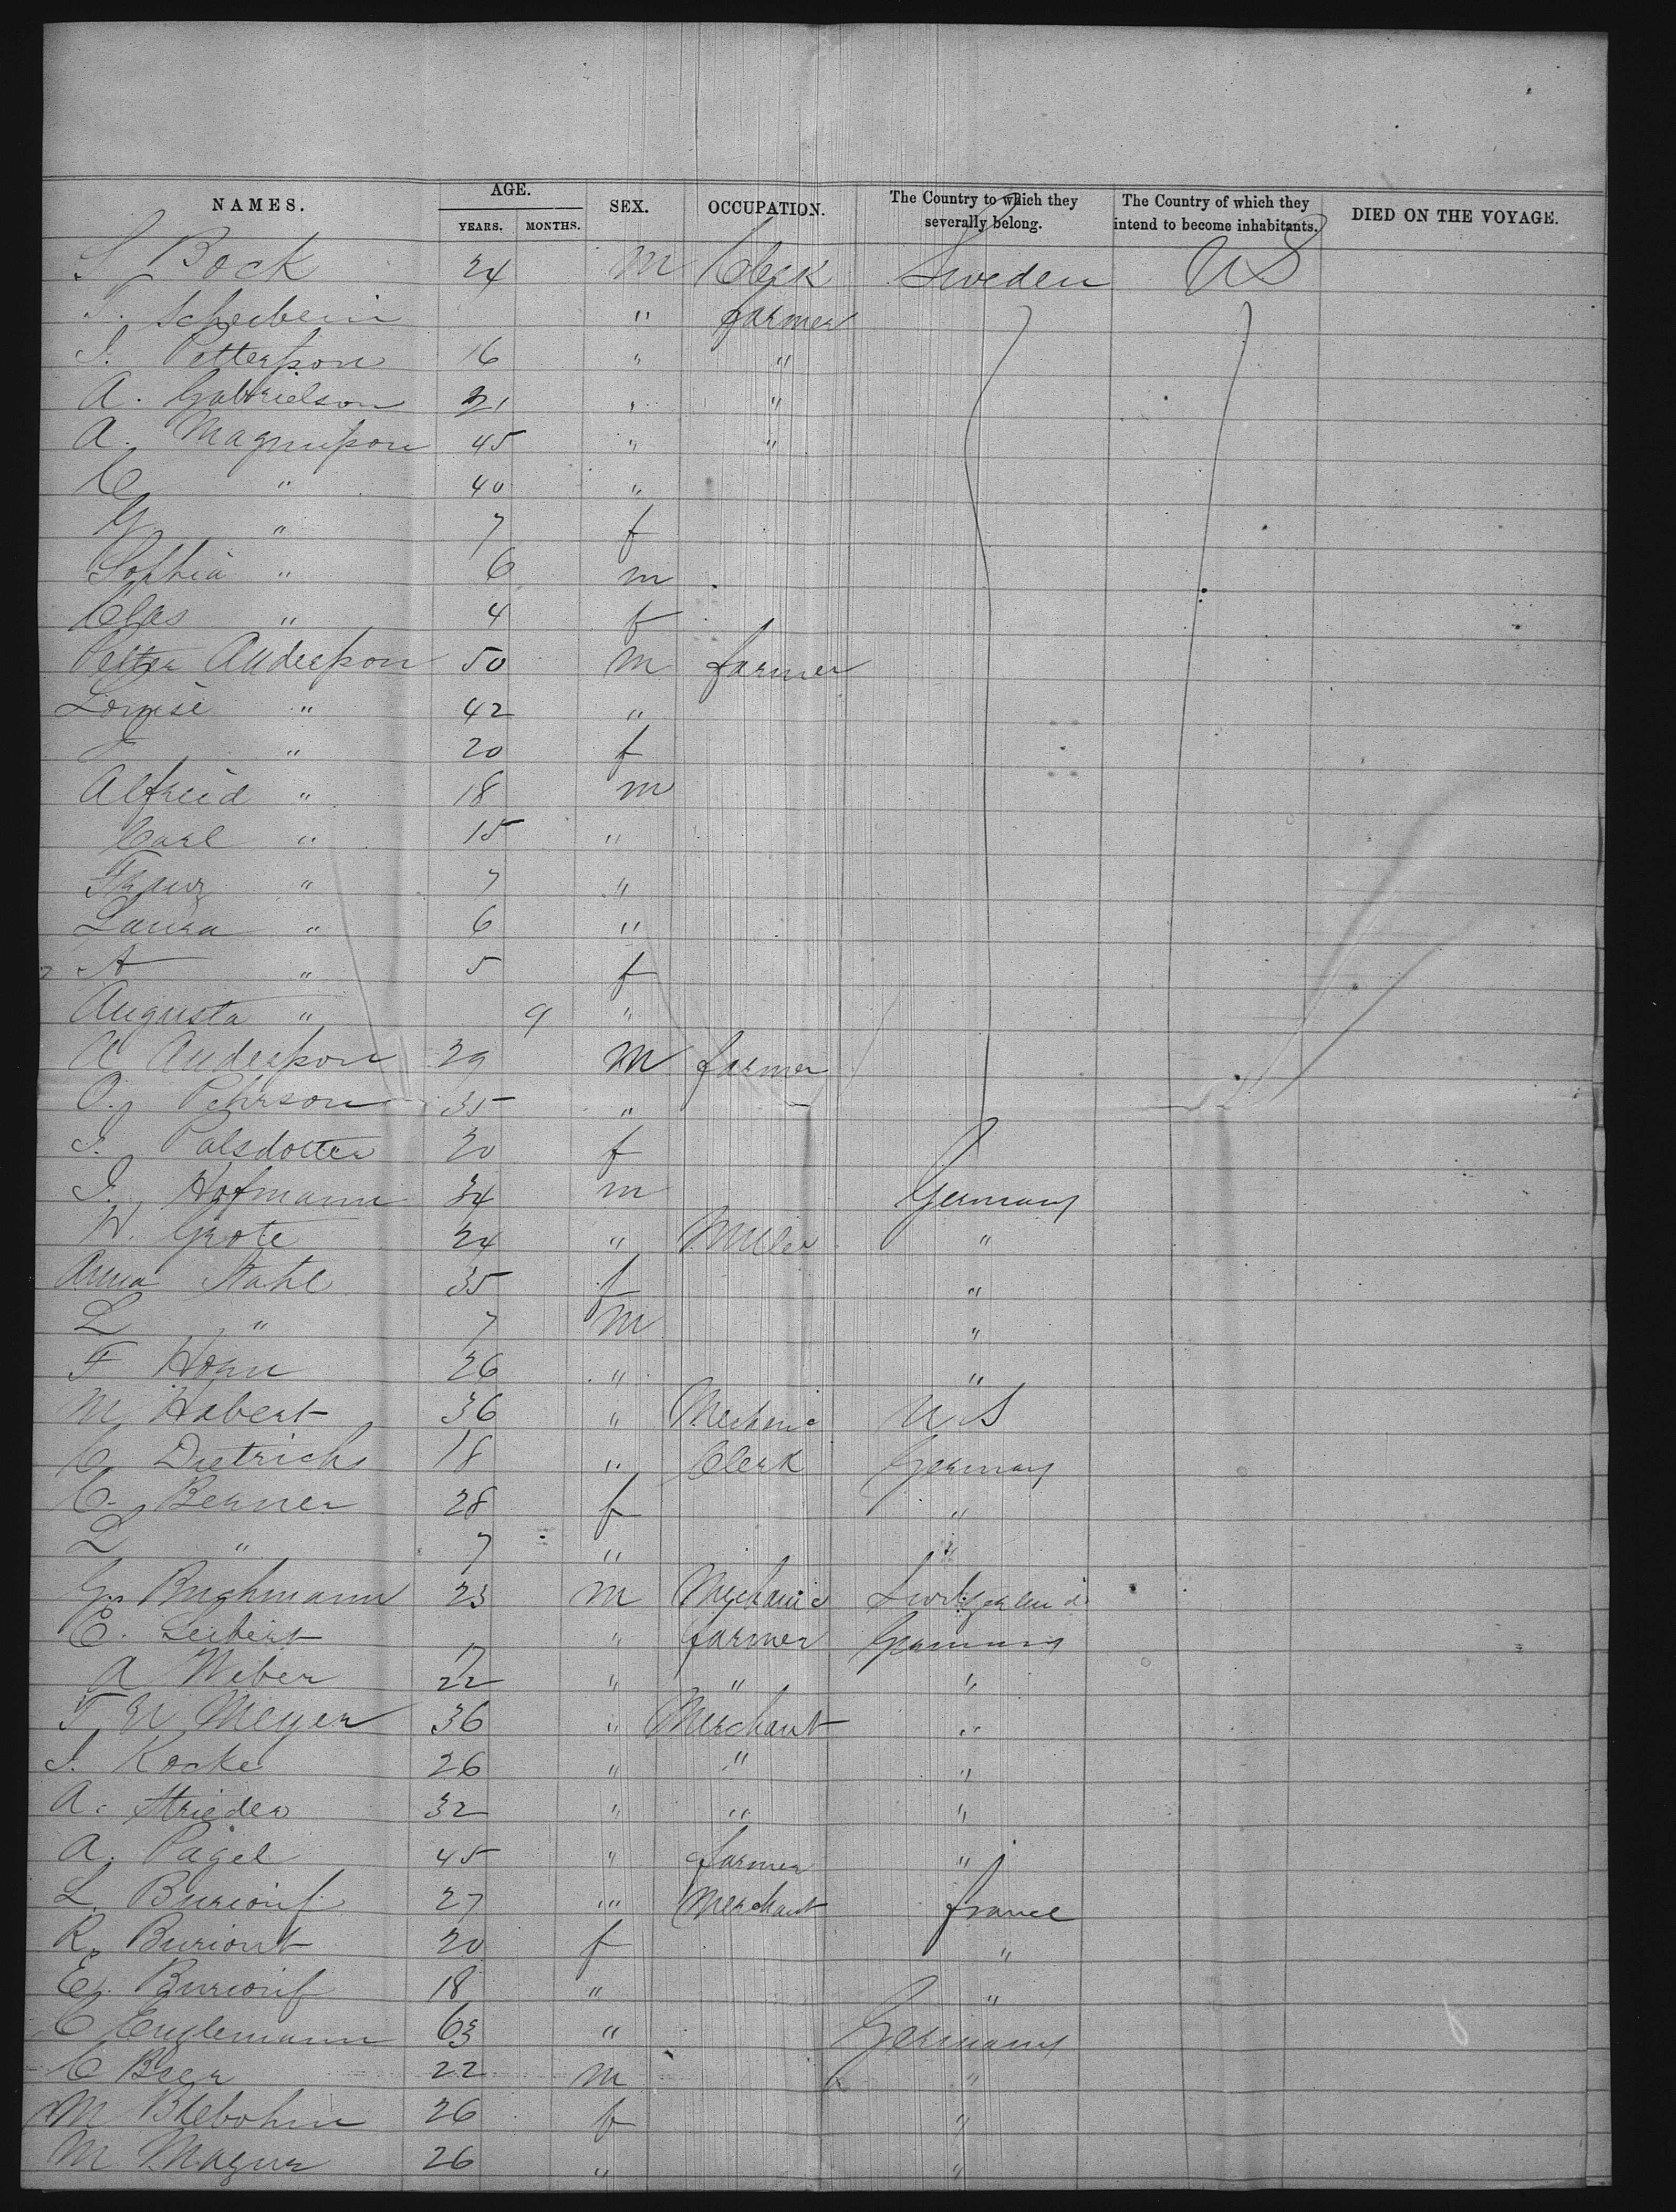 NAMES. AGE. SEX. OCCUPATION. The Country to which they severally belong. The Country of which they intend to become inhabitants. DIED ON THE VOYAGE.
YEARS. MONTHS.
S Bock 24 m Clerk Sweden US
F. " farmer
J. Petterson 16 " "
A. Gabrielson 21 " "
A. Magnusson 45 " "
C " 40 "
G " 7 f
Sophia " 6 m
Clas " 4 f
Petter Andersson 50 m farmer
Louise " 42 "
" 20 f
Alfreid " 18 m
Carl " 15 "
Franz " 7 "
Laura " 6 "
A " 5 f
Augusta " 9 "
A Andersson 29 m farmer
O. Pehrson 35 "
J. Palsdotter 20 f
J. Hofmann 34 m Germany
W. Grote 24 " Miller "
Anna Stahl 35 f "
L " 7 m "
F Horn 26 " "
M Habert 36 " Mechanic U S
C Dietrichs 18 " Clerk Germany
C. Berner 28 f "
L " 7 " "
G. Bughmann 23 m Mechanic Switzerland
E. Seibert 17 " farmer Germany
A Weber 22 " " "
F W Meyer 36 " Merchant "
J. Kocke 26 " " "
A. Strieder 32 " " "
A. Pagel 45 " farmer "
L. Buriouf 27 " Merchant france
R. Buriout 20 f "
E. Buriouf 18 " "
C Englemann 63 " Germany
C Beer 22 m "
M Blebohm 26 f "
M 26 " "